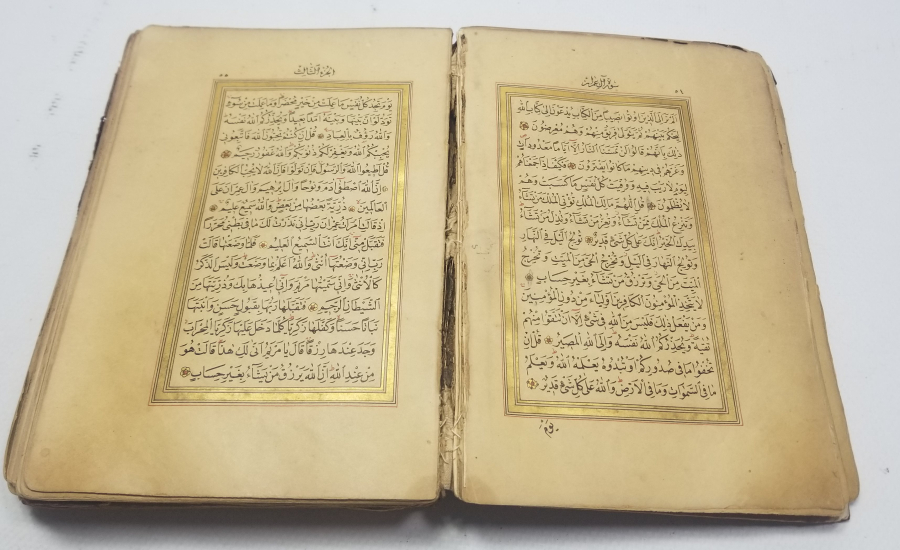 سورة آل عمران
٥١
ألم تر الى الذين اوتوا نصيبا من الكتاب يدعون الى كتاب الله
ليحكم بينهم ثم يتولى فريق منهم وهم معرضون
ذلك بانهم قالوا لن تمسنا النار الا اياما معدودات
وغرهم في دينهم ما كانوا يفترون فكيف اذا جمعناهم
ليوم لا ريب فيه ووفيت كل نفس ما كسبت وهم
لا يظلمون قل اللهم مالك الملك تؤتي الملك من تشاء
وتنزع الملك ممن تشاء وتعز من تشاء وتذل من تشاء
بيدك الخير انك على كل شئ قدير تولج الليل في النهار
وتولج النهار في الليل وتخرج الحي من الميت وتخرج
الميت من الحي وترزق من تشاء بغير حساب
لا يتخذ المؤمنون الكافرين اولياء من دون المؤمنين
ومن يفعل ذلك فليس من الله في شئ الا ان تتقوا منهم
تقية ويحذركم الله نفسه والى الله المصير قل ان
تخفوا ما في صدوركم او تبدوه يعلمه الله ويعلم
ما في السموات وما في الارض والله على كل شئ قدير
يوم
الجزء الثالث
يوم تجد كل نفس ما عملت من خير محضرا وما عملت من سوء
تود لو ان بينها وبينه امدا بعيدا ويحذركم الله نفسه
والله رؤف بالعباد قل ان كنتم تحبون الله فاتبعوني
يحببكم الله ويغفر لكم ذنوبكم والله غفور رحيم
قل اطيعوا الله والرسول فان تولوا فان الله لا يحب الكافرين
ان الله اصطفى ادم ونوحا وال ابرهيم وال عمران على
العالمين ذرية بعضها من بعض والله سميع عليم
اذ قالت امرأت عمران رب اني نذرت لك ما في بطني محررا
فتقبل مني انك انت السميع العليم فلما وضعتها قالت
رب اني وضعتها انثى والله اعلم بما وضعت وليس الذكر
كالانثى واني سميتها مريم واني اعيذها بك وذريتها من
الشيطان الرجيم فتقبلها ربها بقبول حسن وانبتها
نباتا حسنا وكفلها زكريا كلما دخل عليها زكريا المحراب
وجد عندها رزقا قال يا مريم انى لك هذا قالت هو
من عند الله ان الله يرزق من يشاء بغير حساب